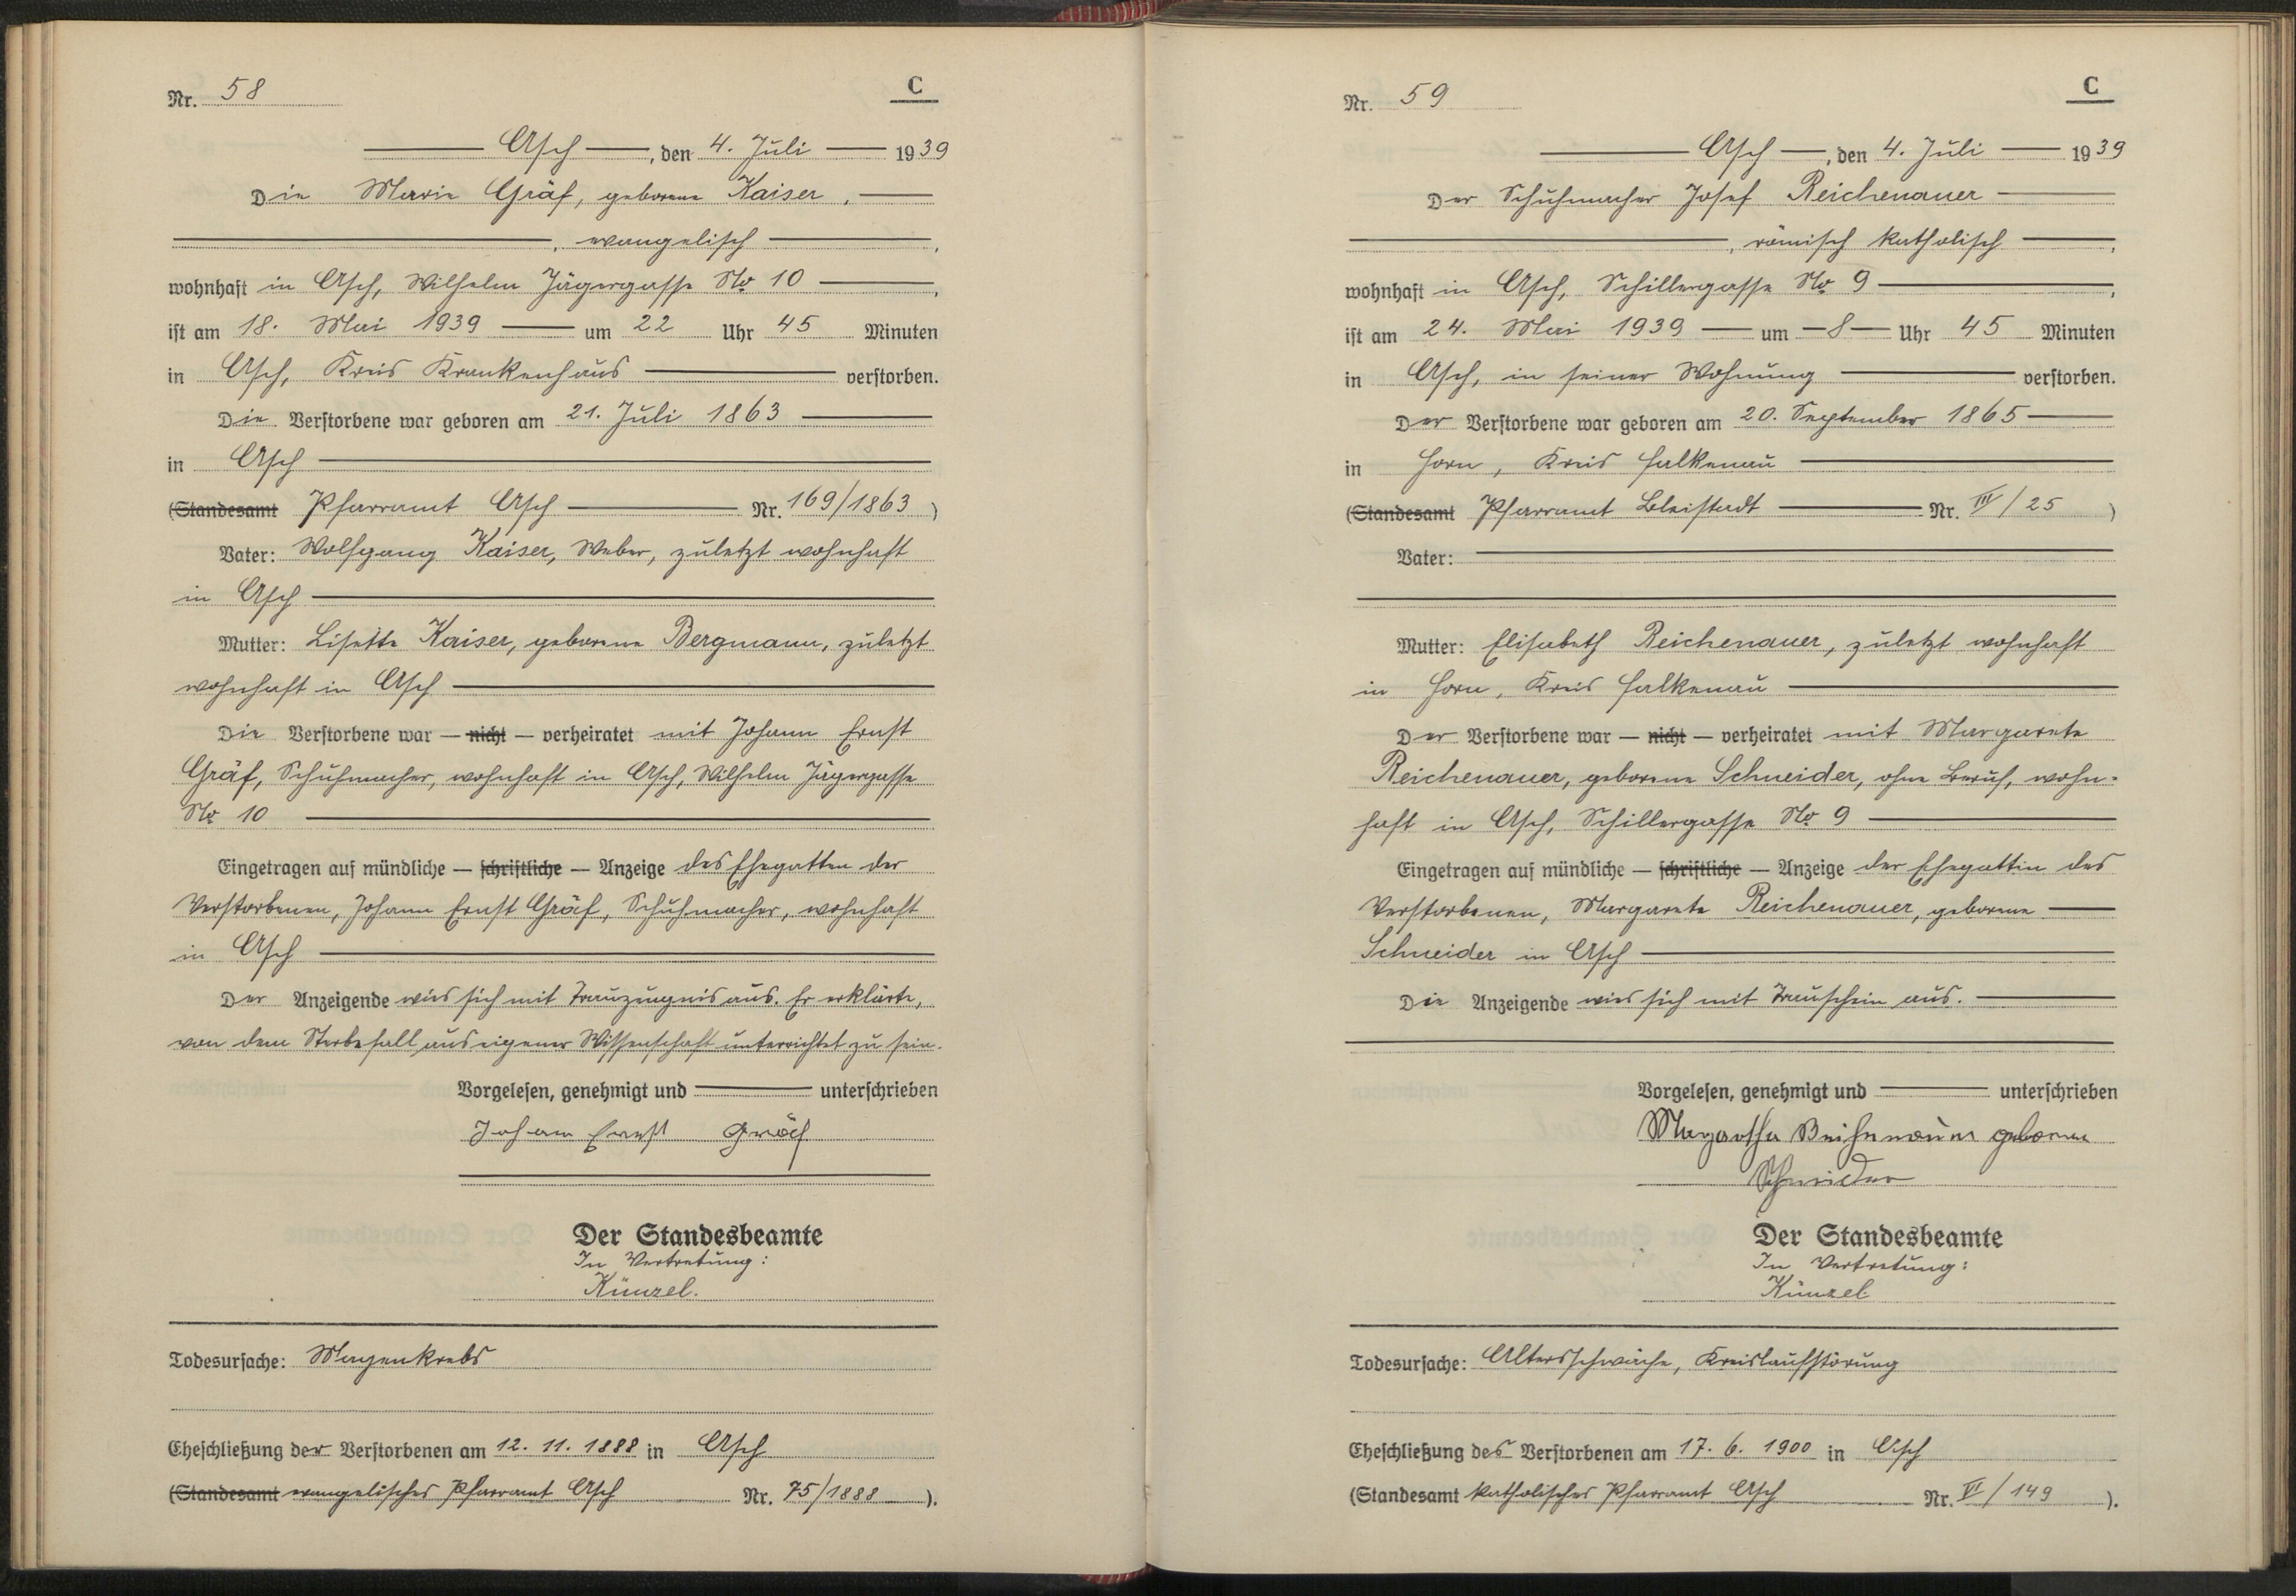 Nr. 58
C
Asch, den 4. Juli 1939
Die Marie Gräf, geborene Kaiser,
, evangelisch,
wohnhaft in Asch, Wilhelm Jägergasse No 10,
ist am 18. Mai 1939 um 22 Uhr 45 Minuten
in Asch, Kreis Krankenhaus verstorben.
Die Verstorbene war geboren am 21. Juli 1863
in Asch
(Standesamt Pfarramt Asch Nr. 169/1863)
Vater: Wolfgang Kaiser, Weber, zuletzt wohnhaft
in Asch
Mutter: Lisette Kaiser, geborene Bergmann, zuletzt
wohnhaft in Asch
Die Verstorbene war — nicht — verheiratet mit Johann Ernst
Gräf, Schuhmacher, wohnhaft in Asch, Wilhelm Jägergasse
No 10
Eingetragen auf mündliche — schriftliche — Anzeige des Ehegatten der
Verstorbenen, Johann Ernst Gräf, Schuhmacher, wohnhaft
in Asch
Der Anzeigende wies sich mit Trauzeugnis aus. Er erklärte,
von dem Sterbefall aus eigener Wissenschaft unterrichtet zu sein.
Vorgelesen, genehmigt und unterschrieben
Johann Ernst Gräf
Der Standesbeamte
In Vertretung:
Künzel.
Todesursache: Magenkrebs
Eheschließung der Verstorbenen am 12. 11. 1888 in Asch
(Standesamt evangelisches Pfarramt Asch Nr. 75/1888).
Nr. 59
C
Asch, den 4. Juli 1939
Der Schuhmacher Josef Reichenauer
, römisch katholisch,
wohnhaft in Asch, Schillergasse No 9,
ist am 24. Mai 1939 um —8— Uhr 45 Minuten
in Asch, in seiner Wohnung verstorben.
Der Verstorbene war geboren am 20. September 1865
in Horn, Kreis Falkenau
(Standesamt Pfarramt Bleistadt Nr. III/25)
Vater:
Mutter: Elisabeth Reichenauer, zuletzt wohnhaft
in Horn, Kreis Falkenau
Der Verstorbene war — nicht — verheiratet mit Margarete
Reichenauer, geborene Schneider, ohne Beruf, wohn-
haft in Asch, Schillergasse No 9
Eingetragen auf mündliche — schriftliche — Anzeige der Ehegattin des
Verstorbenen, Margarete Reichenauer, geborene
Schneider in Asch
Die Anzeigende wies sich mit Trauschein aus.
Vorgelesen, genehmigt und unterschrieben
Margaretha Reichenauer geborene
Schneider
Der Standesbeamte
In Vertretung:
Künzel
Todesursache: Altersschwäche, Kreislaufstörung
Eheschließung des Verstorbenen am 17. 6. 1900 in Asch
(Standesamt katholisches Pfarramt Asch Nr. VI/149).